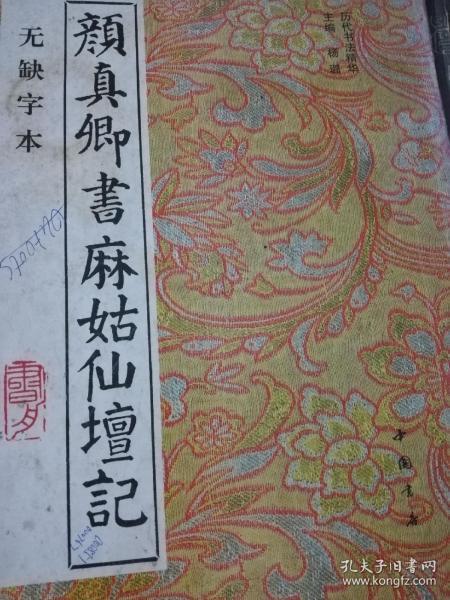 顔真卿書麻姑仙壇記
无缺字本
历代书法精华
主编 杨璐
中国书店
孔夫子旧书网
www.kongfz.com